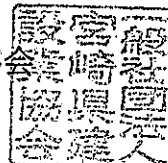 会
一般社団法人
宮崎県建
設業協会